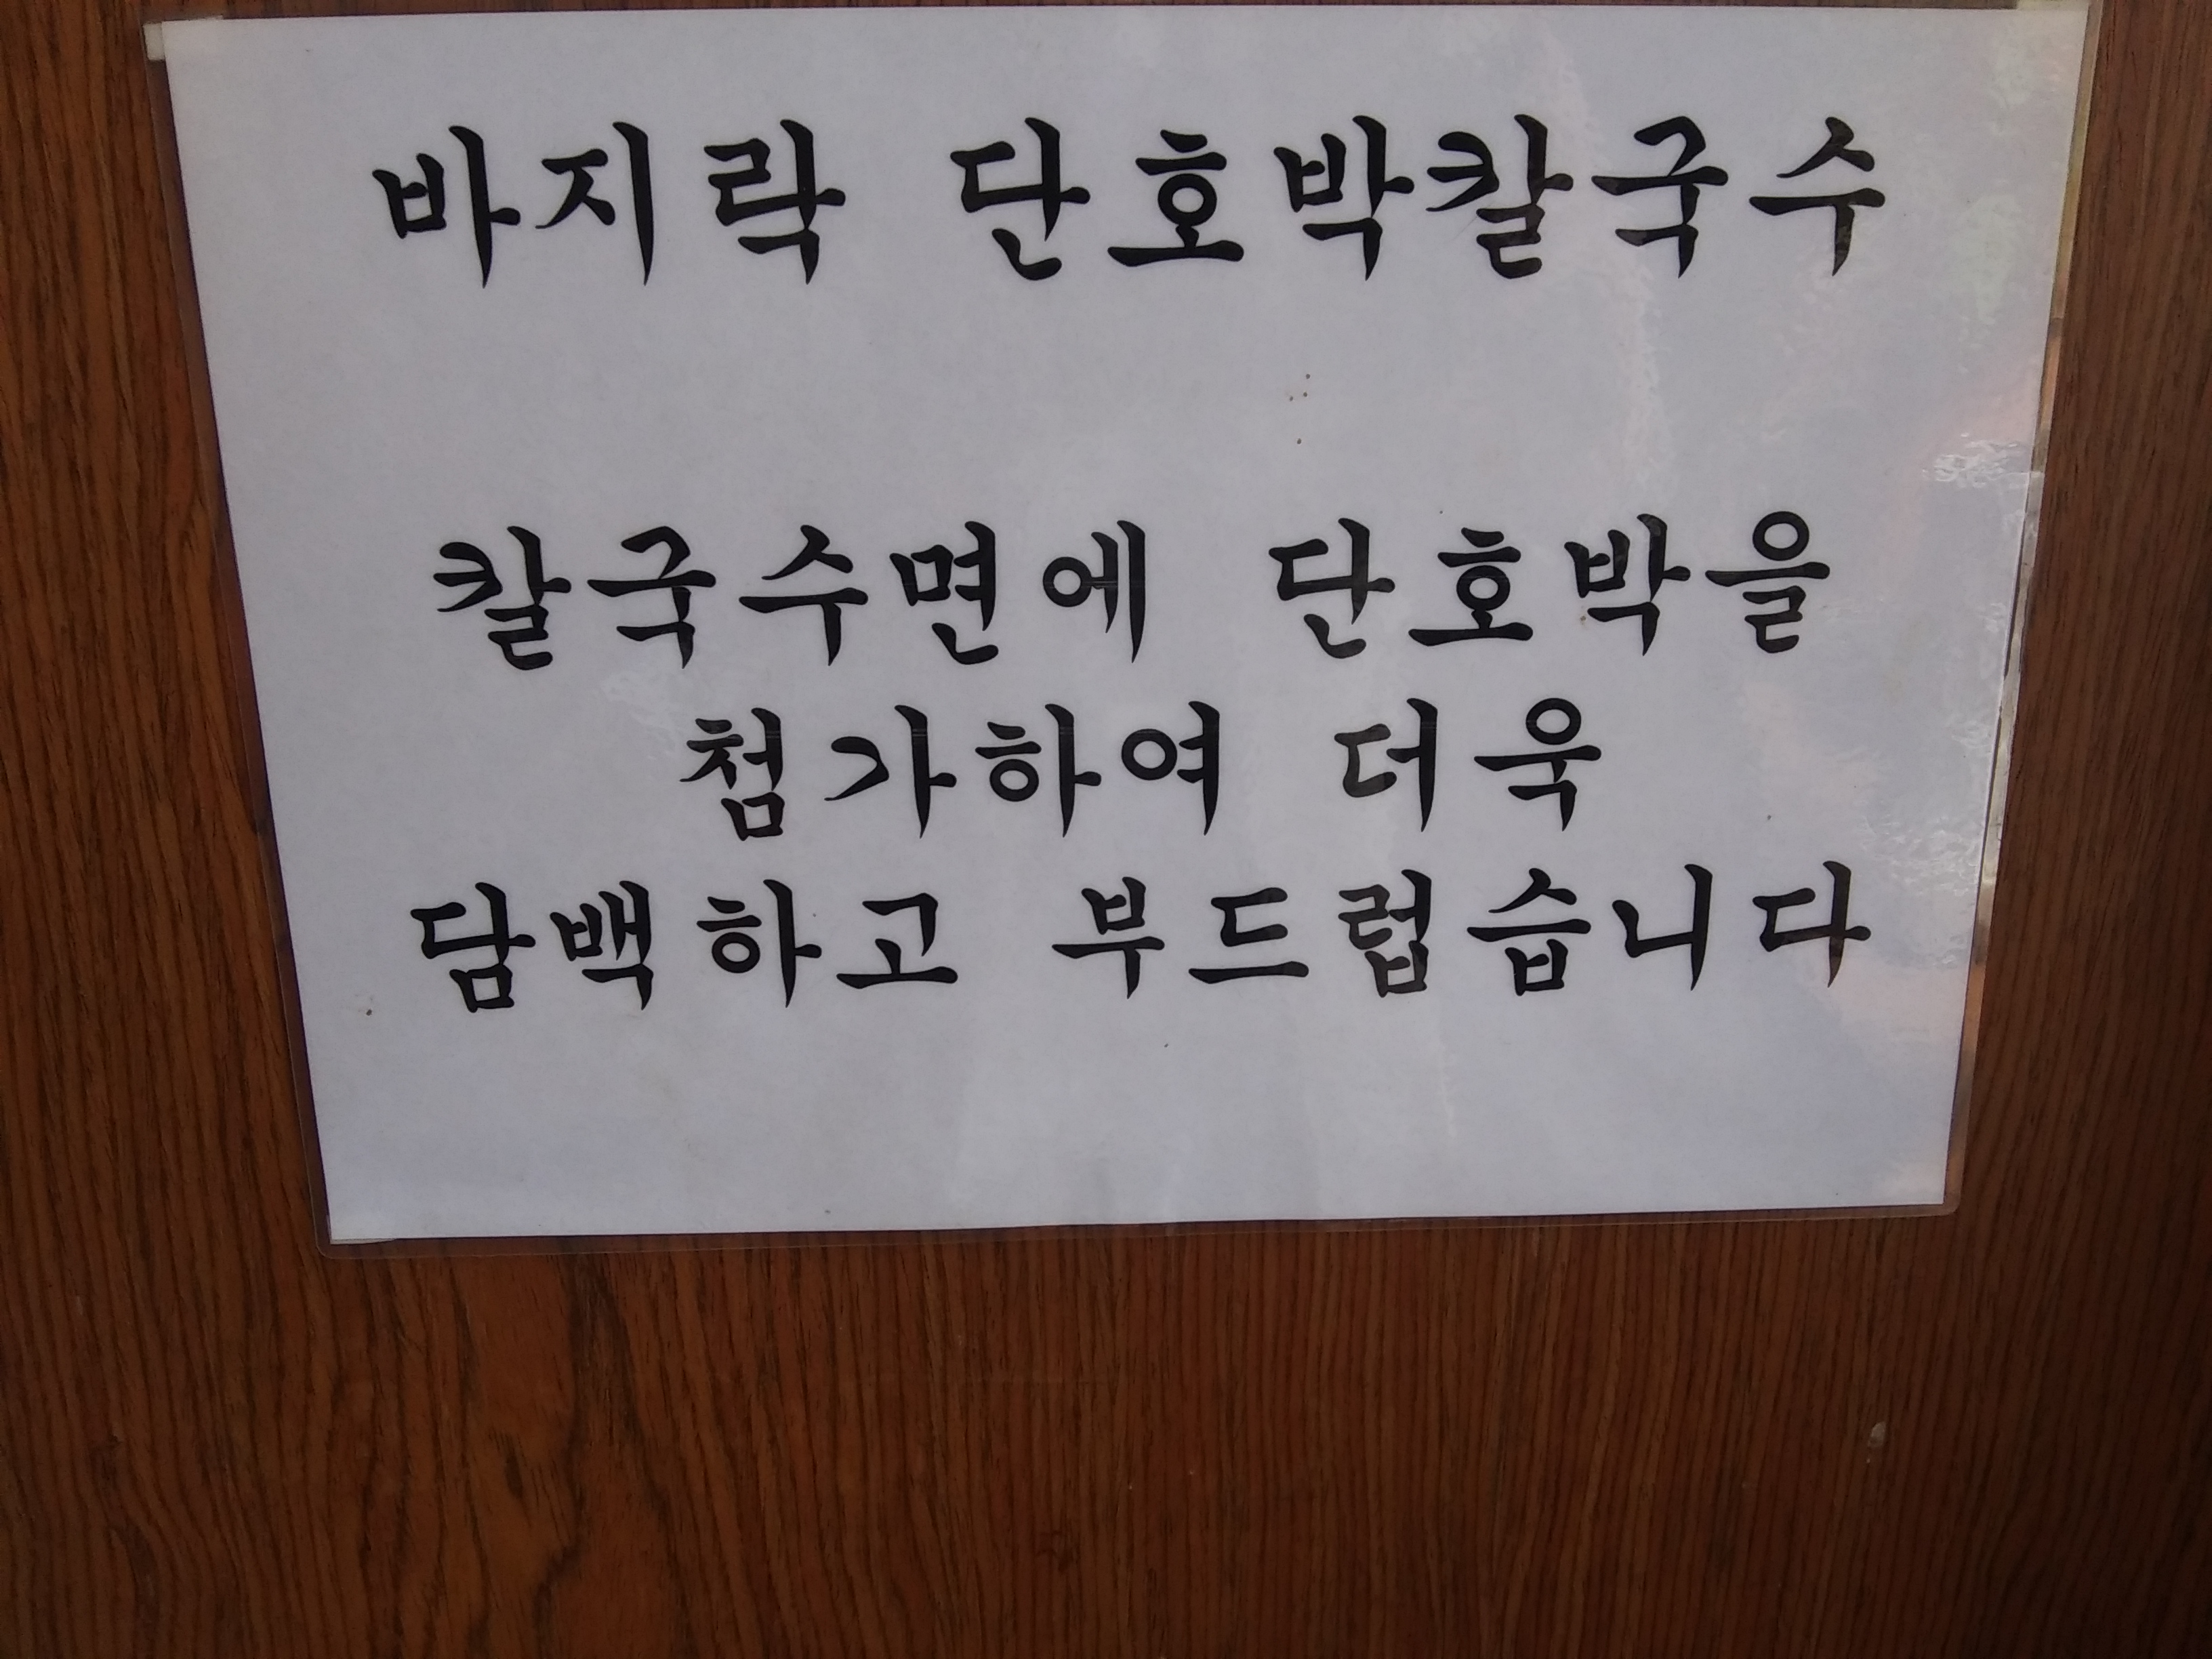 바지락 단호박칼국수
칼국수면에 단호박을
첨가하여 더욱
담백하고 부드럽습니다